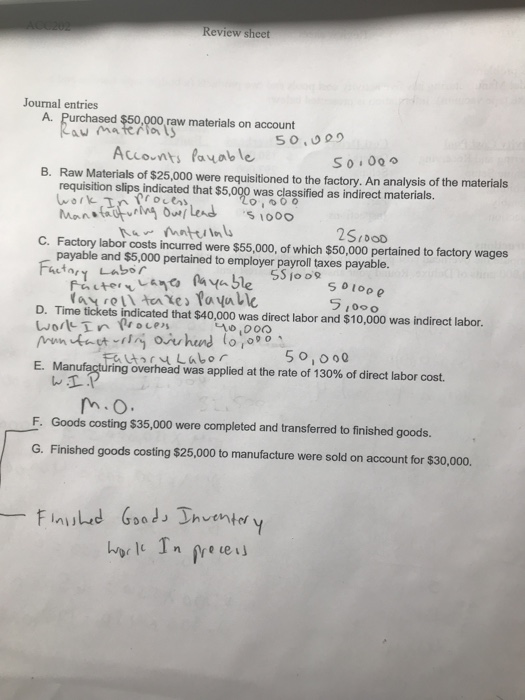 ACG202
Review sheet
Journal entries
A. Purchased $50,000 raw materials on account
Raw materials 50,000
Accounts Payable 50,000
B. Raw Materials of $25,000 were requisitioned to the factory. An analysis of the materials
requisition slips indicated that $5,000 was classified as indirect materials.
Work In Process 20,000
Manufacturing Overhead 5,000
Raw materials 25,000
C. Factory labor costs incurred were $55,000, of which $50,000 pertained to factory wages
payable and $5,000 pertained to employer payroll taxes payable.
Factory Labor 55,000
Factory wages Payable 50,000
Payroll taxes Payable 5,000
D. Time tickets indicated that $40,000 was direct labor and $10,000 was indirect labor.
Work In Process 40,000
manufacturing overhead 10,000
Factory Labor 50,000
E. Manufacturing overhead was applied at the rate of 130% of direct labor cost.
W.I.P
M.O.
F. Goods costing $35,000 were completed and transferred to finished goods.
G. Finished goods costing $25,000 to manufacture were sold on account for $30,000.
Finished Goods Inventory
Work In process